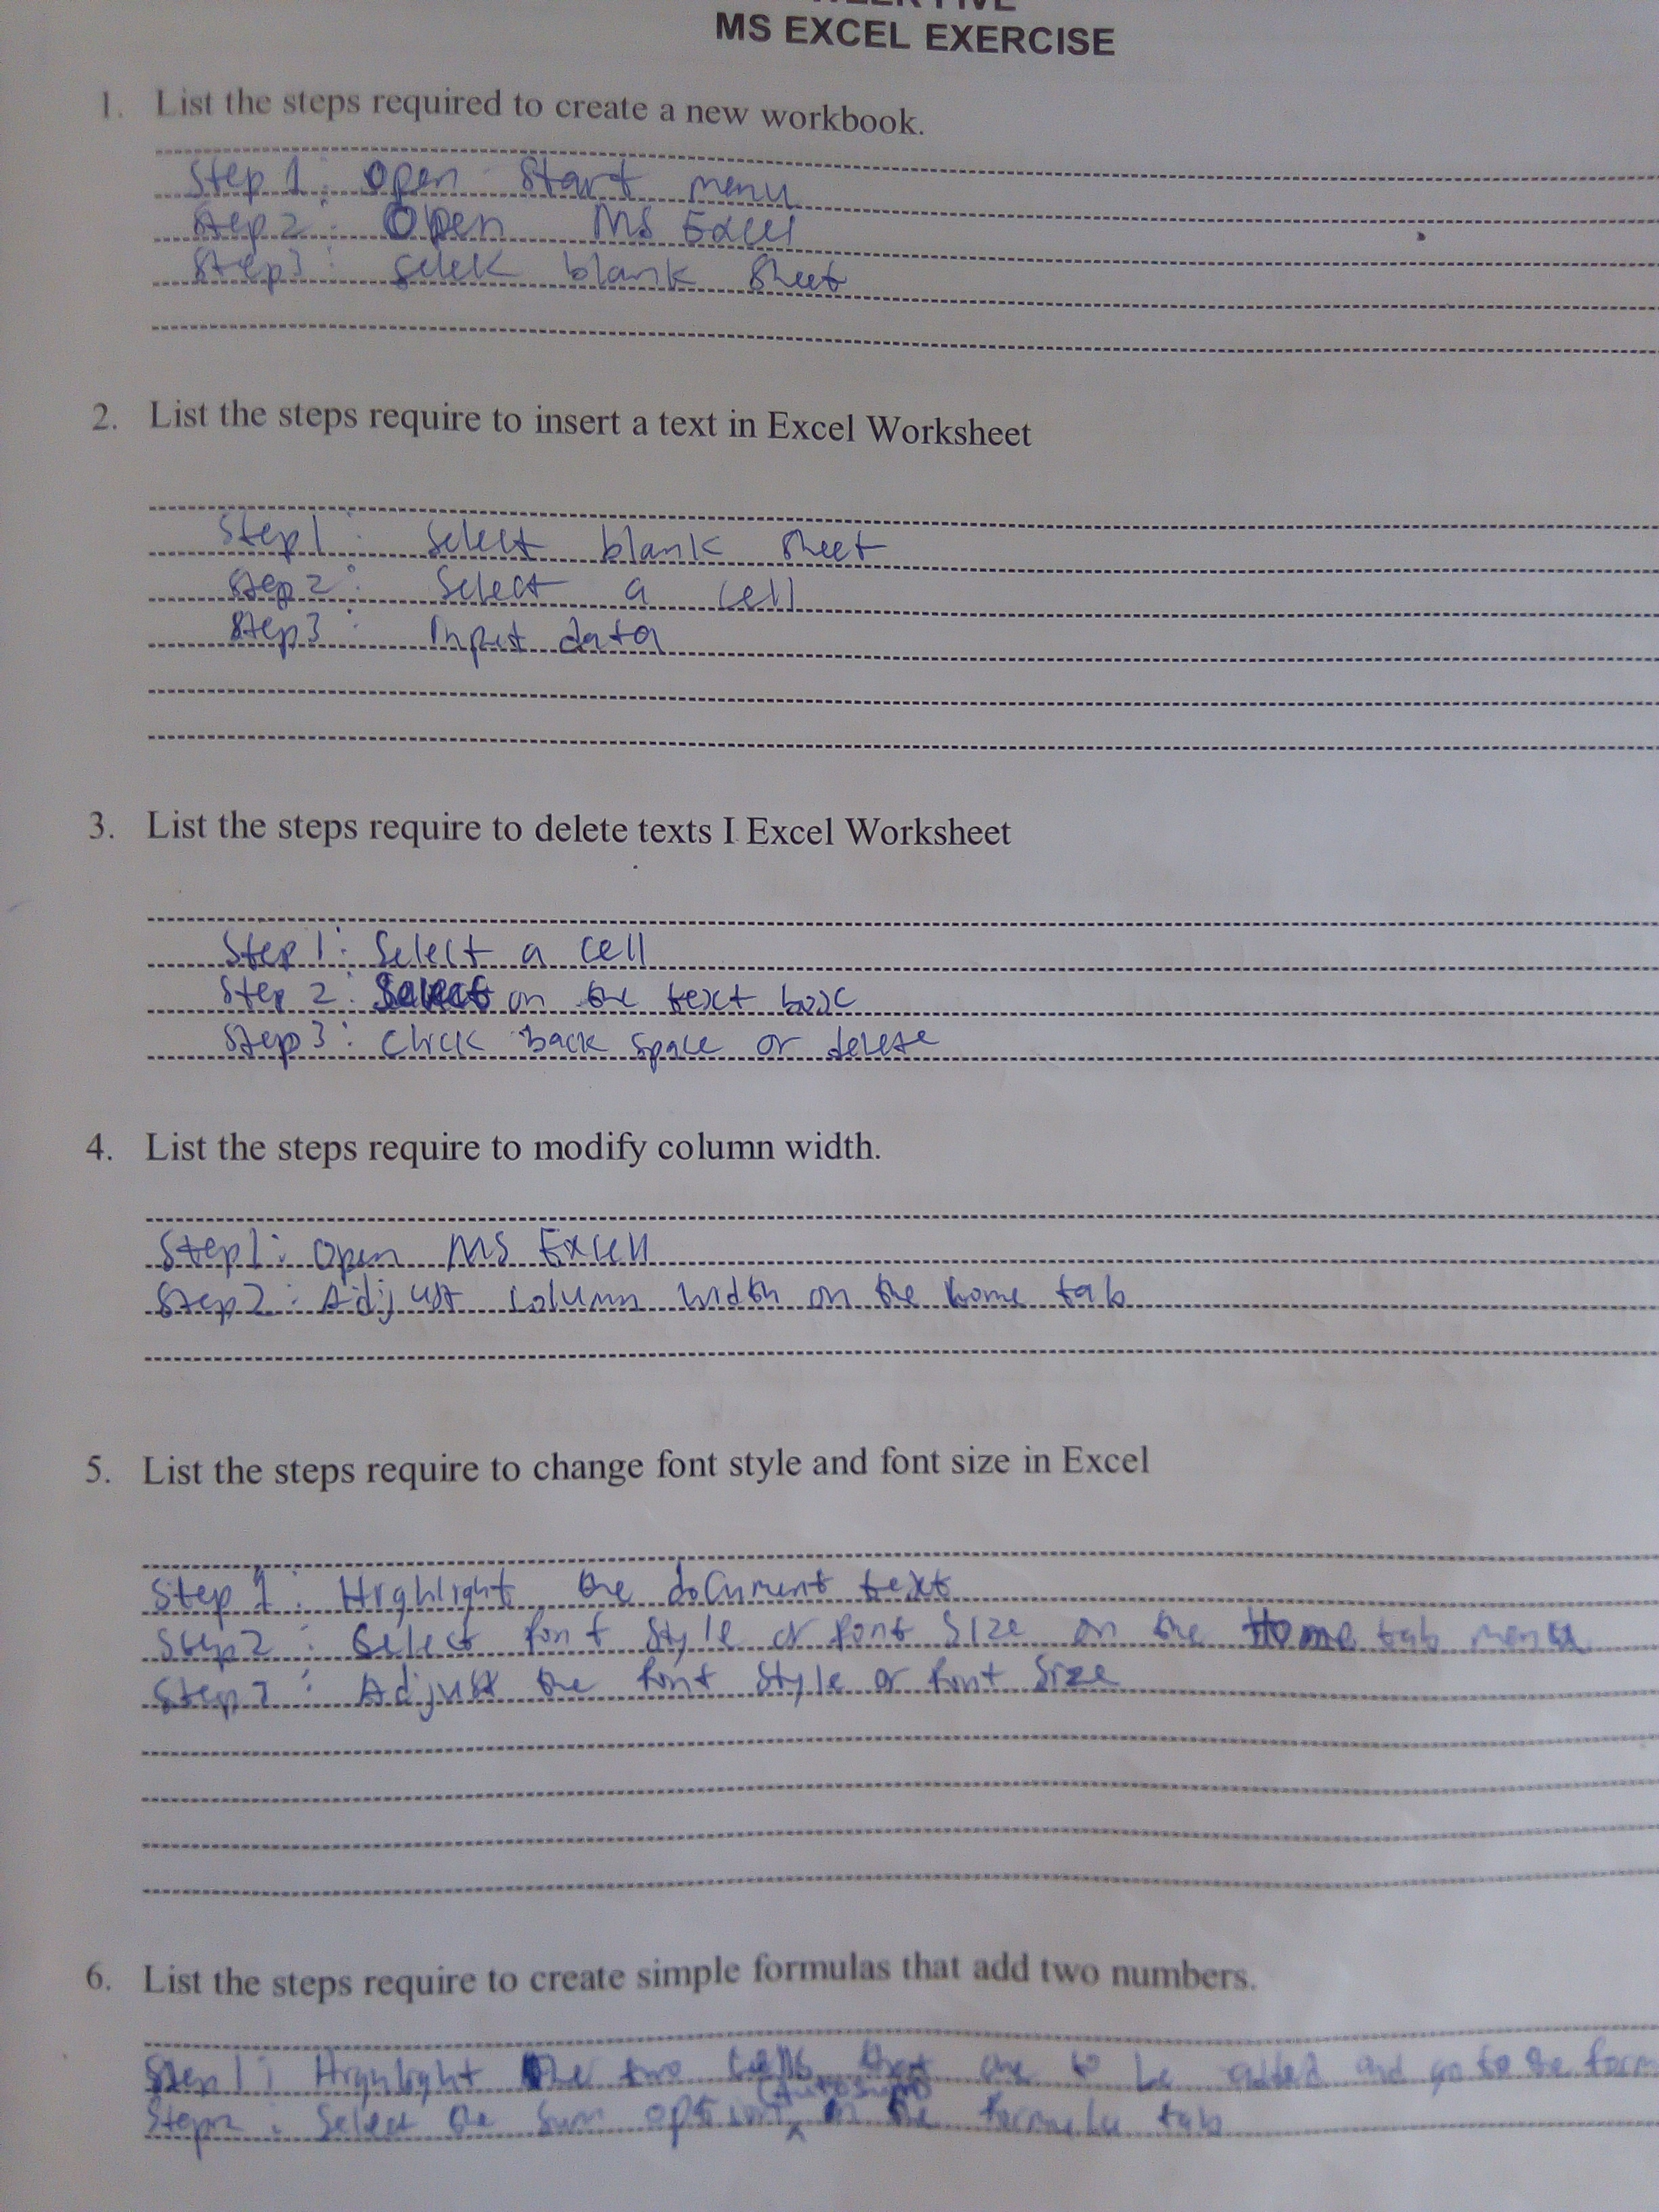 WEEK FIVE
MS EXCEL EXERCISE
1. List the steps required to create a new workbook.
Step 1: Open Start menu
Step 2: Open MS Excel
Step 3: Select blank sheet
2. List the steps require to insert a text in Excel Worksheet
Step 1: Select blank sheet
Step 2: Select a cell
Step 3: Input data
3. List the steps require to delete texts I Excel Worksheet
Step 1: Select a cell
Step 2: Select on the text box
Step 3: Click back space or delete
4. List the steps require to modify column width.
Step 1: Open MS Excell
Step 2: Adjust column width on the home tab
5. List the steps require to change font style and font size in Excel
Step 1: Highlight the document text
Step 2: Select font style or font size on the Home tab menu
Step 3: Adjust the font style or font size
6. List the steps require to create simple formulas that add two numbers.
Step 1: Highlight the two cells that are to be added and go to the form
(Autosum)
Step 2: Select the sum option in the formula tab